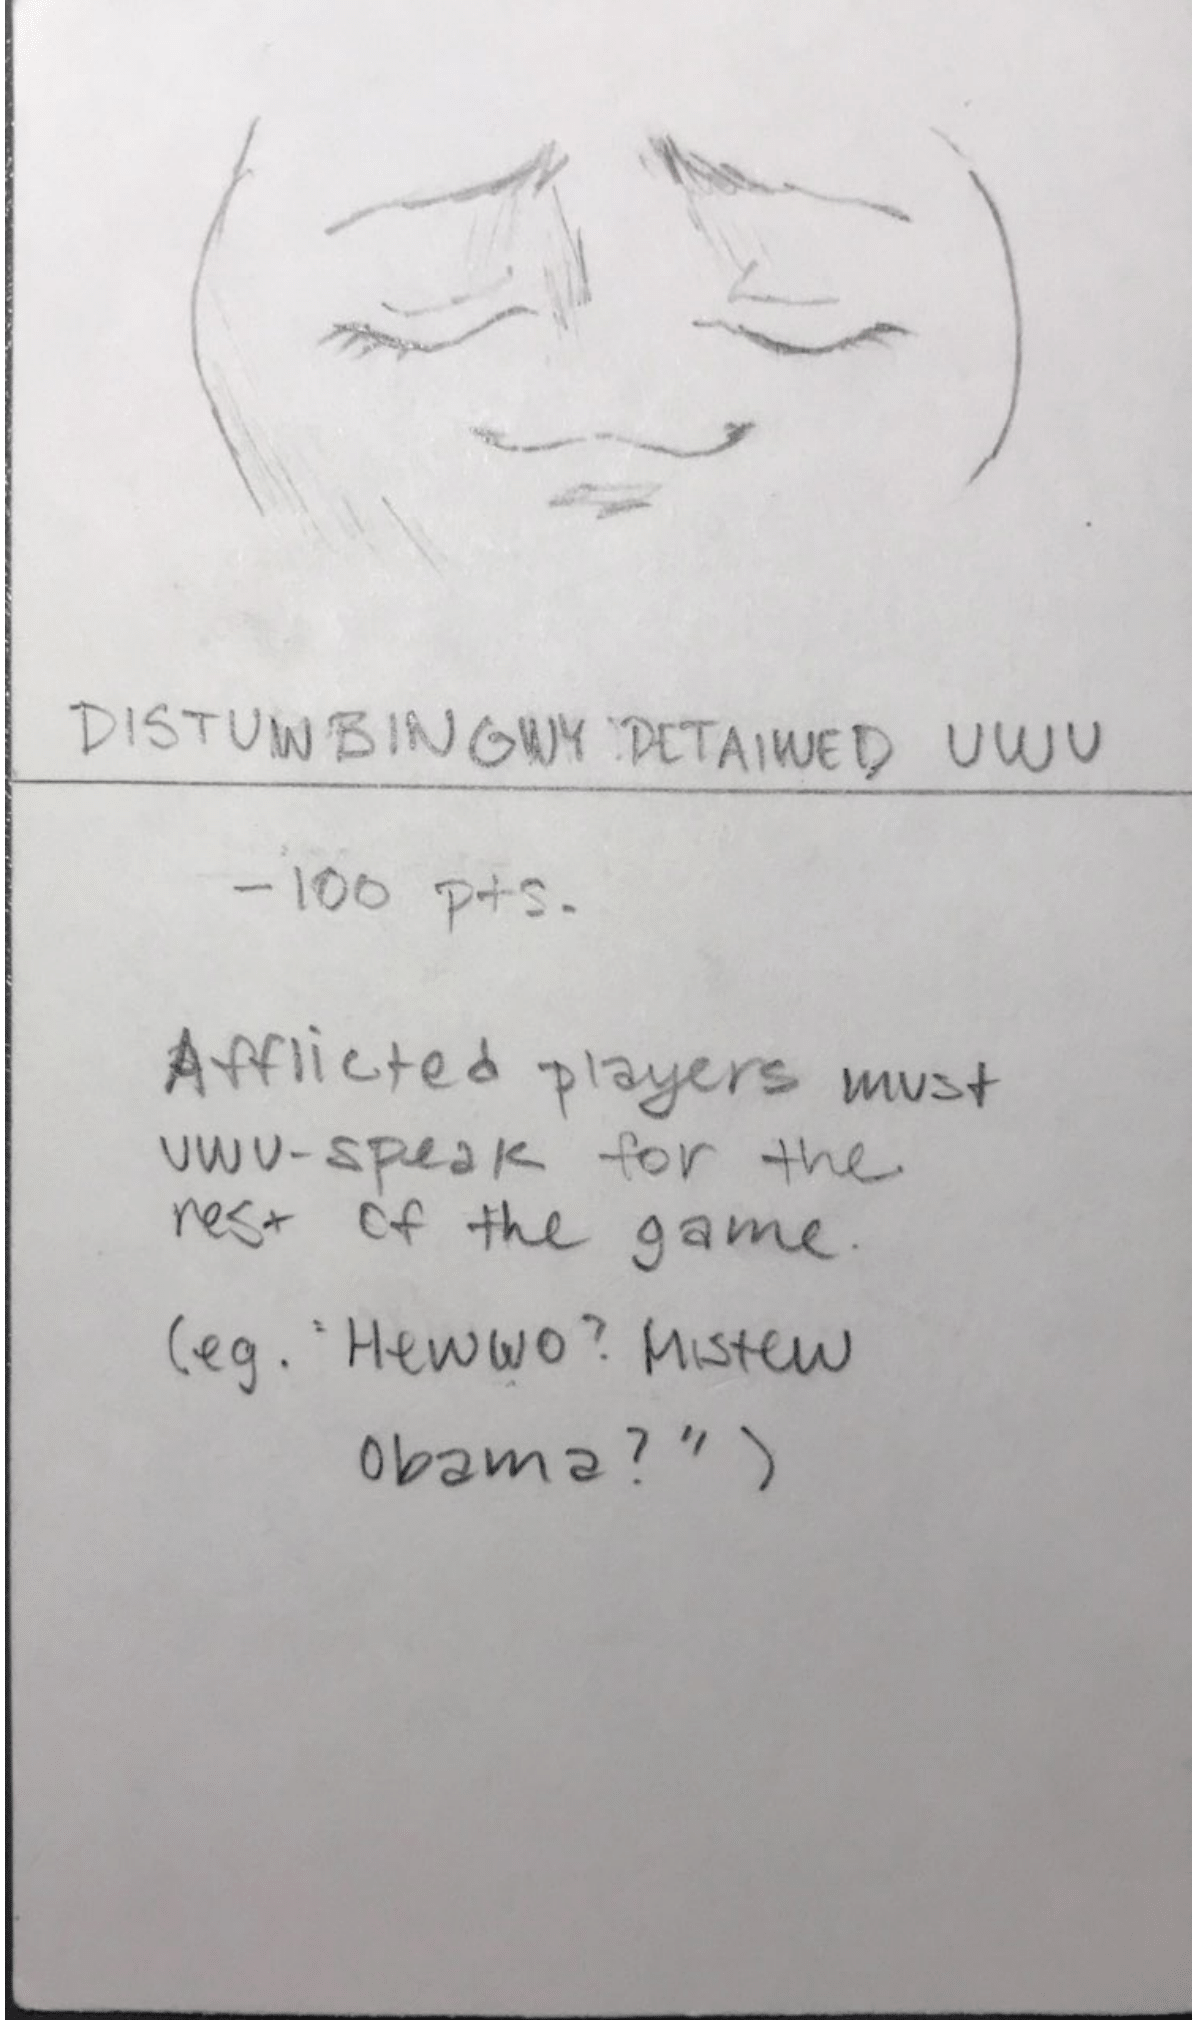 DISTUWBINGWY DETAIWED UWU
-100 pts.
Afflicted players must
uwu-speak for the
rest of the game.
(eg. "Hewwo? Mistew
Obama?")